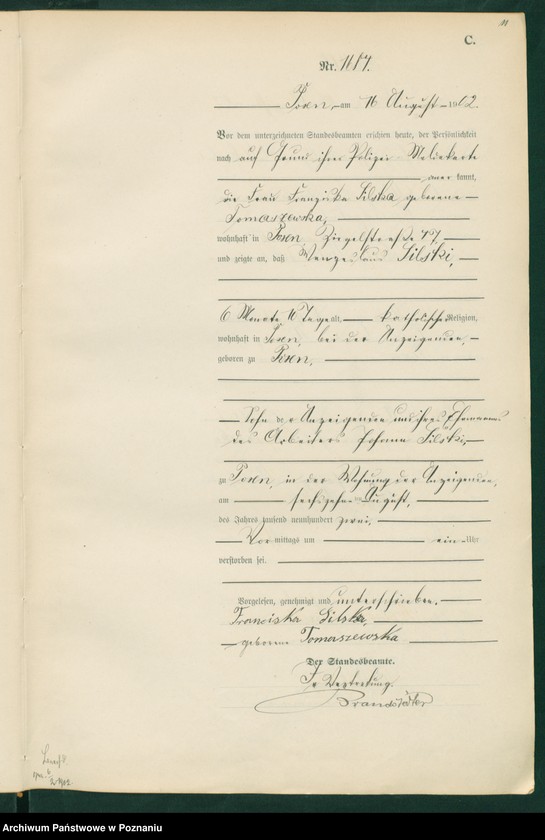 C.
Nr. 1117.
Posen, am 16 August 1902.
Vor dem unterzeichneten Standesbeamten erschien heute, der Persönlichkeit
nach auf Grund ihrer Polizei-Meldekarte
anerkannt,
die Frau Franziska Silska geborene
Tomaszewska,
wohnhaft in Posen, Ziegelstraße
und zeigte an, daß Wenzeslaus Silski,
6 Monate 16 Tage alt, katholischer Religion,
wohnhaft in Posen, bei der Anzeigenden,
geboren zu Posen,
Sohn der Anzeigenden und ihres Ehemannes
des Arbeiters Johann Silski,
zu Posen, in der Wohnung der Anzeigenden,
am sechszehnten August,
des Jahres tausend neunhundert zwei,
Vor mittags um ein Uhr
verstorben sei.
Vorgelesen, genehmigt und unterschrieben.
Franciska Silska,
geborene Tomaszewska
Der Standesbeamte.
In Vertretung.
Archiwum Państwowe w Poznaniu